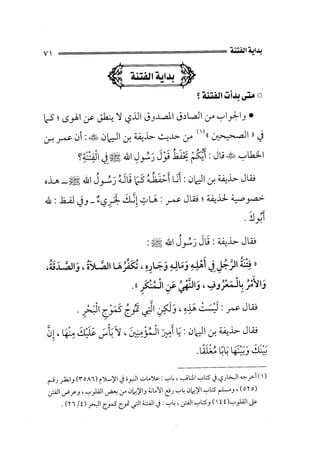 بداية الفتنة ٧١
بداية الفتنة
○ متى بدأت الفتنة ؟
• والجواب من الصادق المصدوق الذي لا ينطق عن الهوى ؛ كما
في « الصحيحين »(١) من حديث حذيفة بن اليمان ﷺ : أن عمر بن
الخطاب ﷺ قال : أَيُّكُمْ يَحْفَظُ قَوْلَ رَسُولِ الله ﷺ فِي الْفِتْنَةِ؟
فقال حذيفة بن اليمان : أَنَا أَحْفَظُهُ كَمَا قَالَهُ رَسُولُ الله ﷺ ـ هذه
خصوصية لحذيفة ؛ فقال عمر : هَاتِ إِنَّكَ لجَرِيءٌ ـ وفي لفظ : لله
أَبُوكَ .
فقال حذيفة : قَالَ رَسُولُ الله ﷺ :
« فِتْنَةُ الرَّجُلِ فِي أَهْلِهِ وَمَالِهِ وَجَارِهِ، تُكَفِّرُهَا الصَّلاَةُ، وَالصَّدَقَةُ،
وَالأَمْرُ بِالْمَعْرُوفِ، وَالنَّهْيُ عَنِ الْمُنْكَرِ ».
فقال عمر : لَيْسَتْ هَذِهِ، وَلَكِنِ الَّتِي تَمُوجُ كَمَوْجِ الْبَحْرِ .
فقال حذيفة بن اليمان : يَا أَمِيرَ الْمُؤْمِنِينَ، لاَ بَأْسَ عَلَيْكَ مِنْهَا، إِنَّ
بَيْنَكَ وَبَيْنَهَا بَابًا مُغْلَقًا.
(١) أخرجه البخاري في كتاب المناقب ، باب : علامات النبوة في الإسلام (٣٥٨٦) وانظر رقم
(٥٢٥) ، ومسلم كتاب الإيمان باب رفع الأمانة والإيمان من بعض القلوب ، وعرض الفتن
على القلوب (١٤٤) وكتاب الفتن ، باب : في الفتنة التي تموج كموج البحر (٤ / ٢٦) .